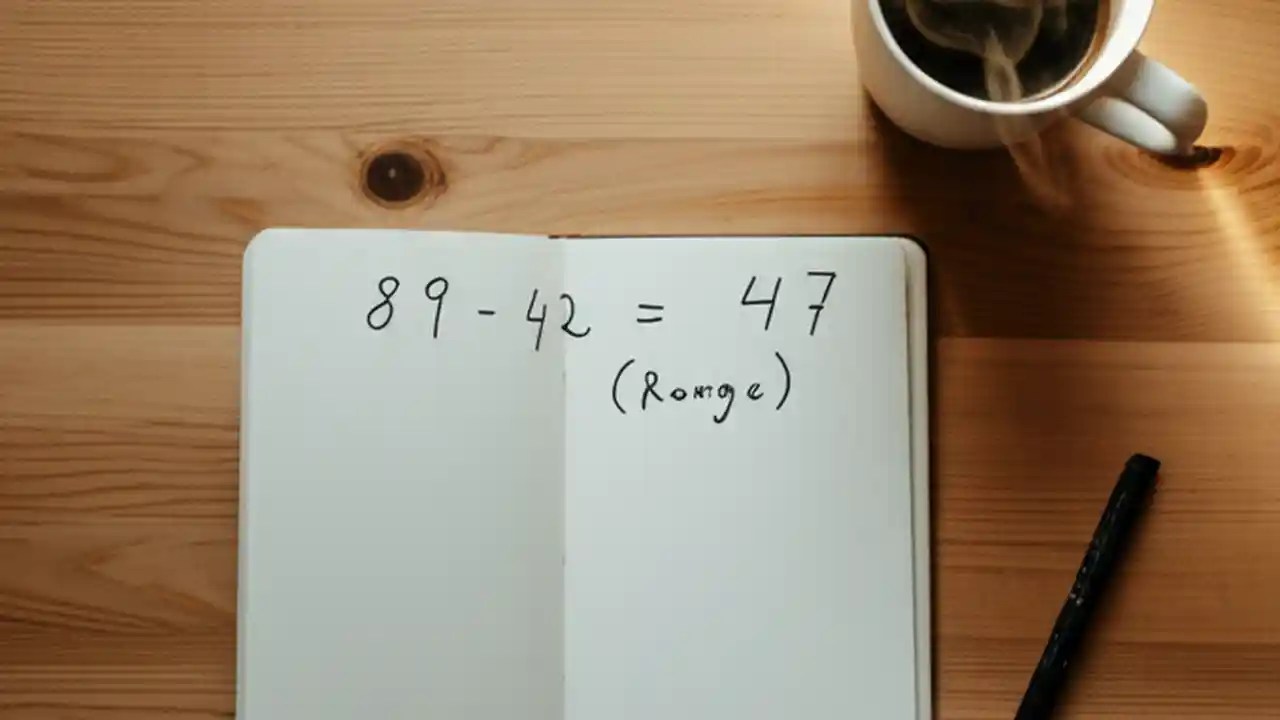 89 - 42 = 47
(Range)